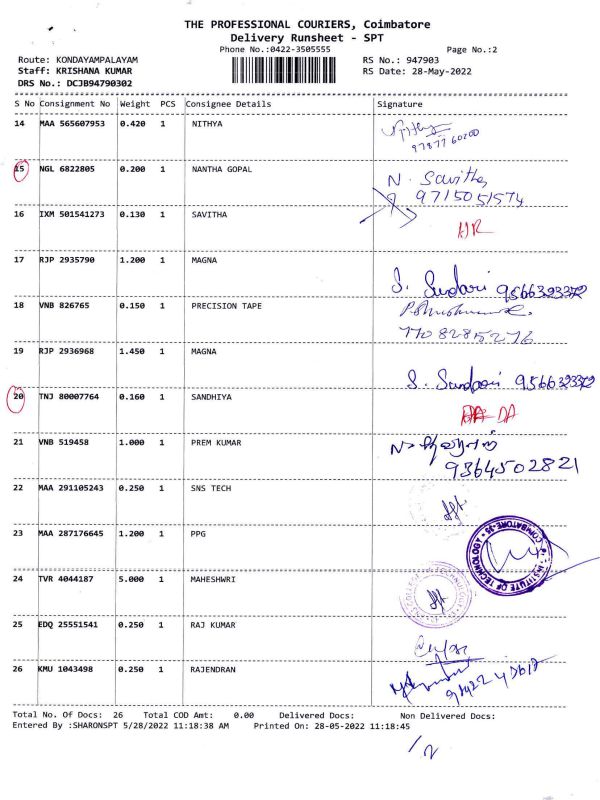 THE PROFESSIONAL COURIERS, Coimbatore
Delivery Runsheet - SPT
Phone No.:0422-3505555
Page No.:2
Route: KONDAYAMPALAYAM
RS No.: 947903
Staff: KRISHANA KUMAR
RS Date: 28-May-2022
DRS No.: DCJB94790302
S No Consignment No Weight PCS Consignee Details Signature
14 MAA 565607953 0.420 1 NITHYA
97877 60200
15 NGL 6822805 0.200 1 NANTHA GOPAL N. Savitha
9715051574
16 IXM 501541273 0.130 1 SAVITHA
17 RJP 2935790 1.200 1 MAGNA
S. Sundari 9566393372
18 VNB 826765 0.150 1 PRECISION TAPE
7708285276
19 RJP 2936968 1.450 1 MAGNA
S. Sundari 9566393372
20 TNJ 80007764 0.160 1 SANDHIYA
DA
21 VNB 519458 1.000 1 PREM KUMAR
9364502821
22 MAA 291105243 0.250 1 SNS TECH
23 MAA 287176645 1.200 1 PPG
INSTITUTE OF TECHNOLOGY COIMBATORE-35
24 TVR 4044187 5.000 1 MAHESHWRI
25 EDQ 25551541 0.250 1 RAJ KUMAR
26 KMU 1043498 0.250 1 RAJENDRAN
Total No. Of Docs: 26 Total COD Amt: 0.00 Delivered Docs: Non Delivered Docs:
Entered By :SHARONSPT 5/28/2022 11:18:38 AM Printed On: 28-05-2022 11:18:45